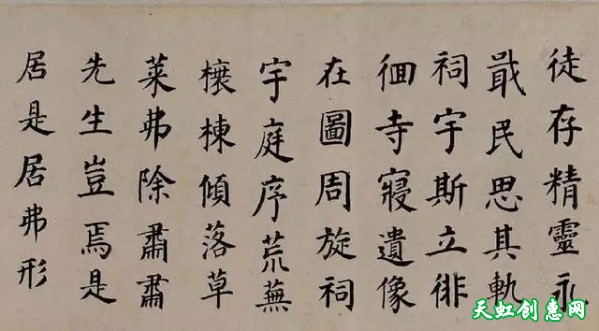 徒存精靈永
戢民思其軌
祠宇斯立徘
徊寺寢遺像
在圖周旋祠
宇庭序荒蕪
榱棟傾落草
萊弗除肅肅
先生豈焉是
居是居弗形
天虹创惠网